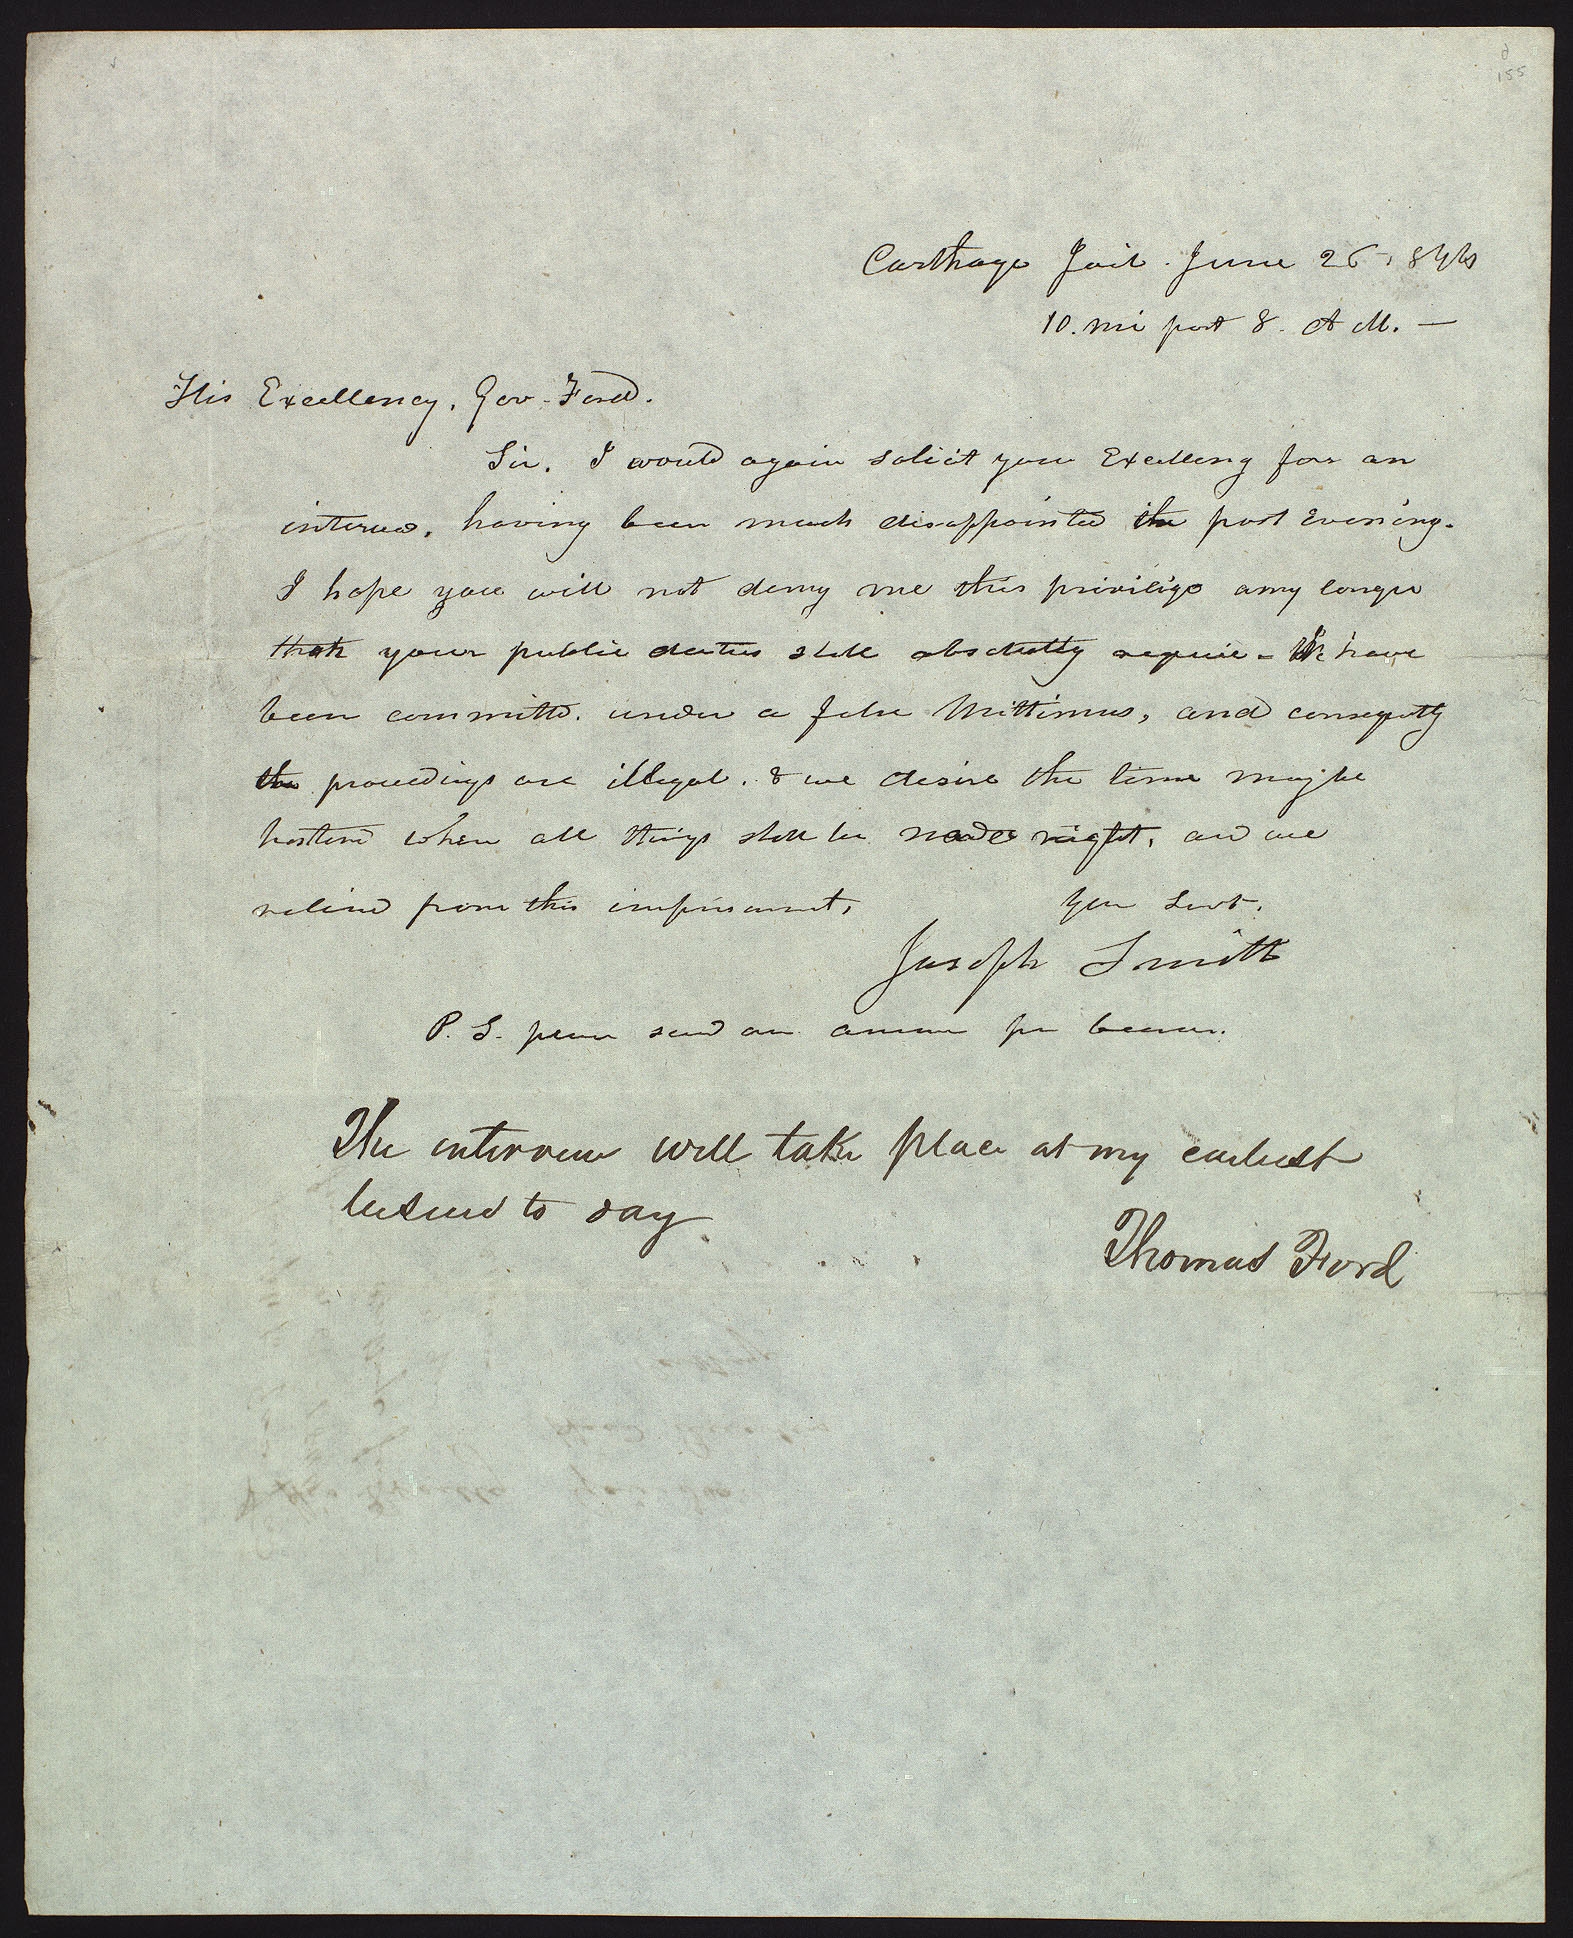 155
Carthage Jail. June 26, 1844
10. mi past 8. A M. —
His Excellency, Gov. Ford.
Sir, I would again solicit your Excellency for an
interview, having been much disappointed the past Evening.
I hope you will not deny me this privilige any longer
than your public duties shall absolutely require - We have
been committed. under a false Mittimus, and consequently
the proceedings are illegal. & we desire the time may be
hastend when all things shall be made right, and we
relievd from this imprisonment,
Your Servt.
Joseph Smith
P. S. please send an answer per bearer.
The interview will take place at my earliest
leisure to day
Thomas Ford